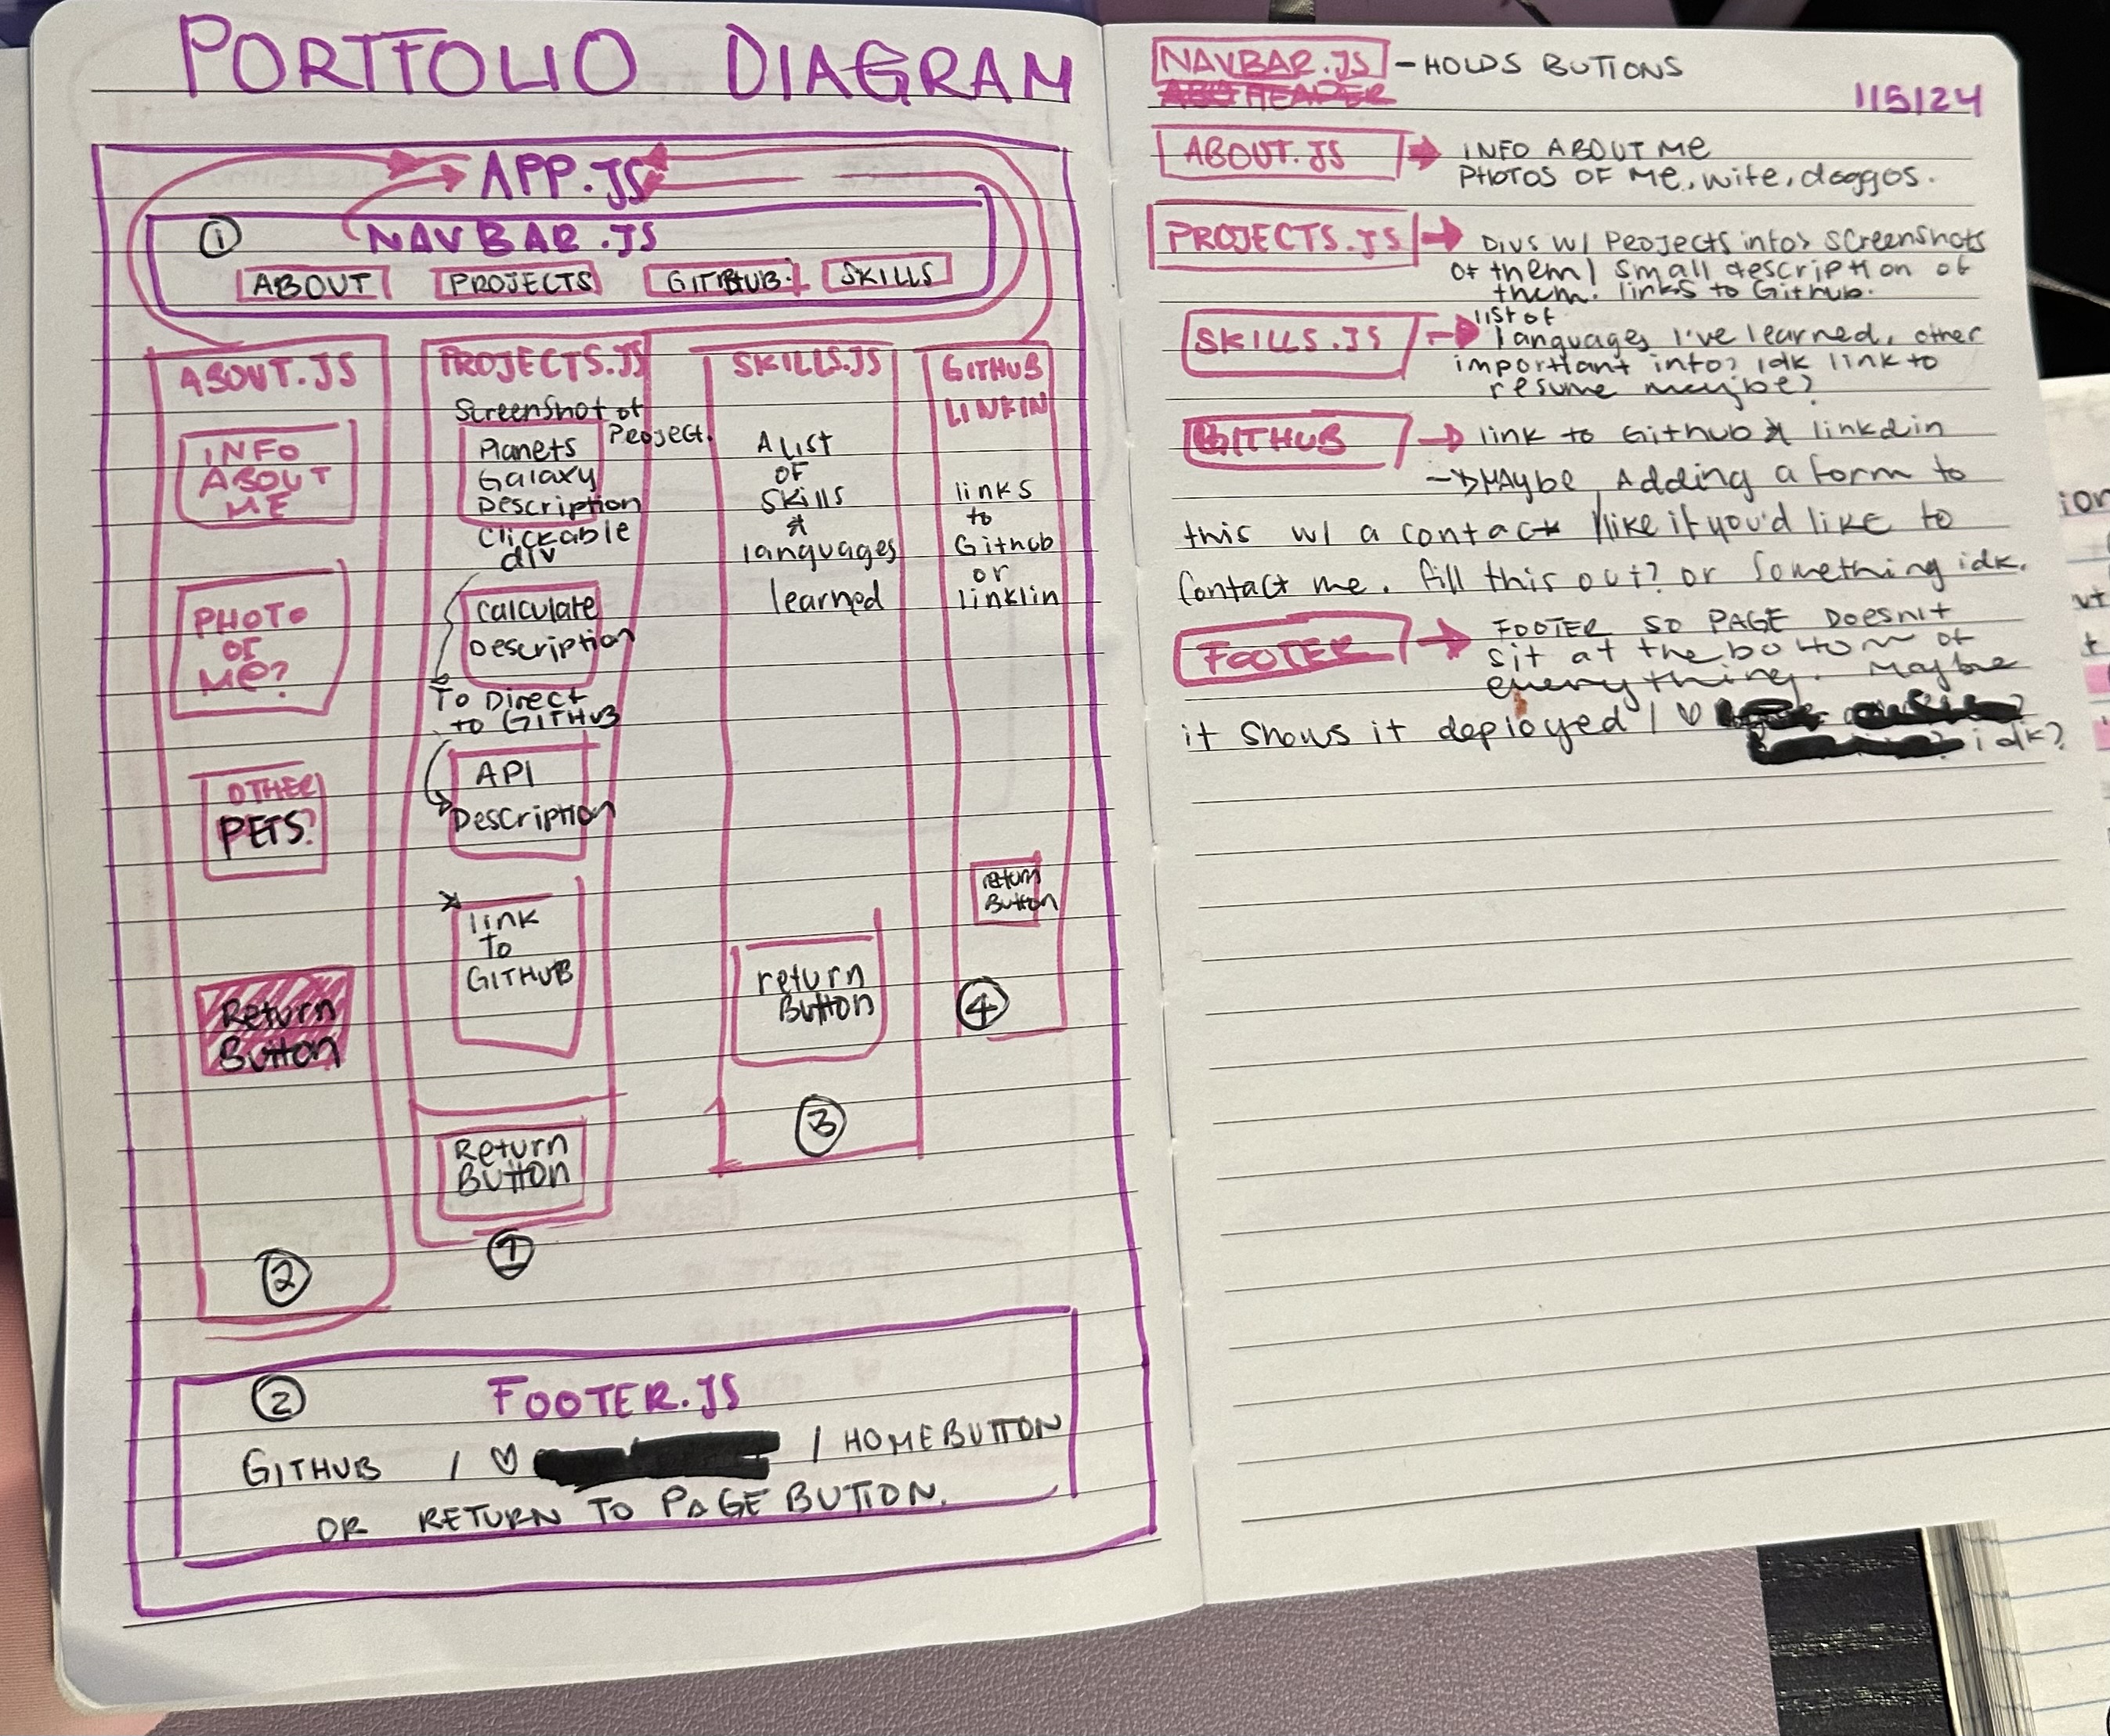 PORTFOLIO DIAGRAM
APP.JS
1
NAVBAR.JS
ABOUT PROJECTS GITHUB SKILLS
ABOUT.JS
INFO
ABOUT
ME
PHOTO
OF
ME?
OTHER
PETS?
Return
Button
2
PROJECTS.JS
Screenshot of
Project.
Planets
Galaxy
Description
Clickable
div
Calculate
Description
To Direct
to GITHUB
API
Description
link
To
GITHUB
Return
Button
1
SKILLS.JS
A list
OF
Skills
&
languages
learned
return
Button
3
GITHUB
LINKIN
links
to
Github
or
linklin
return
Button
4
2
FOOTER.JS
GITHUB / ♡ / HOMEBUTTON
OR RETURN TO PAGE BUTTON.
NAVBAR.JS - HOLDS BUTTONS
HEADER
1/5/24
ABOUT.JS → INFO ABOUT Me
PHOTOS OF Me, wife, doggos.
PROJECTS.JS → Divs w/ Projects info> Screenshots
of them/ small description of
them. links to Github.
SKILLS.JS → list of
languages I've learned, other
important info? idk link to
resume maybe?
GITHUB → link to Github & linkdin
→ Maybe Adding a form to
this w/ a contact like if you'd like to
Contact me. fill this out? or something idk.
FOOTER → FOOTER SO PAGE Doesn't
sit at the bottom of
everything. Maybe
it shows it deployed / ♡
idk?